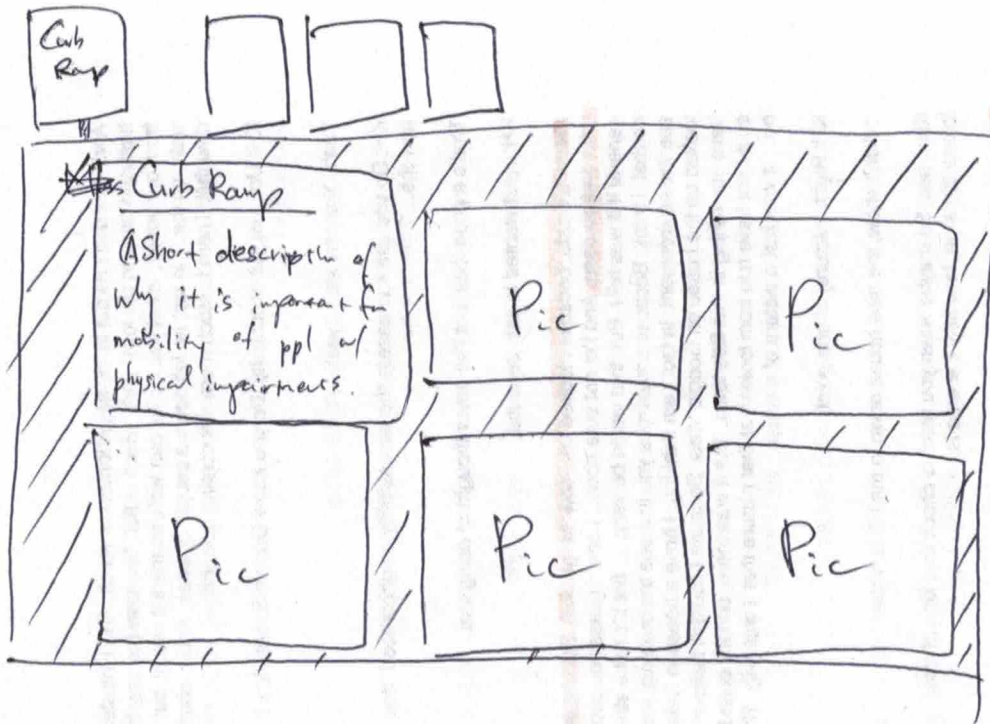 Curb
Ramp
Curb Ramp
(A Short description of
Why it is important for
mobility of ppl w/
physical impairments.
Pic
Pic
Pic
Pic
Pic